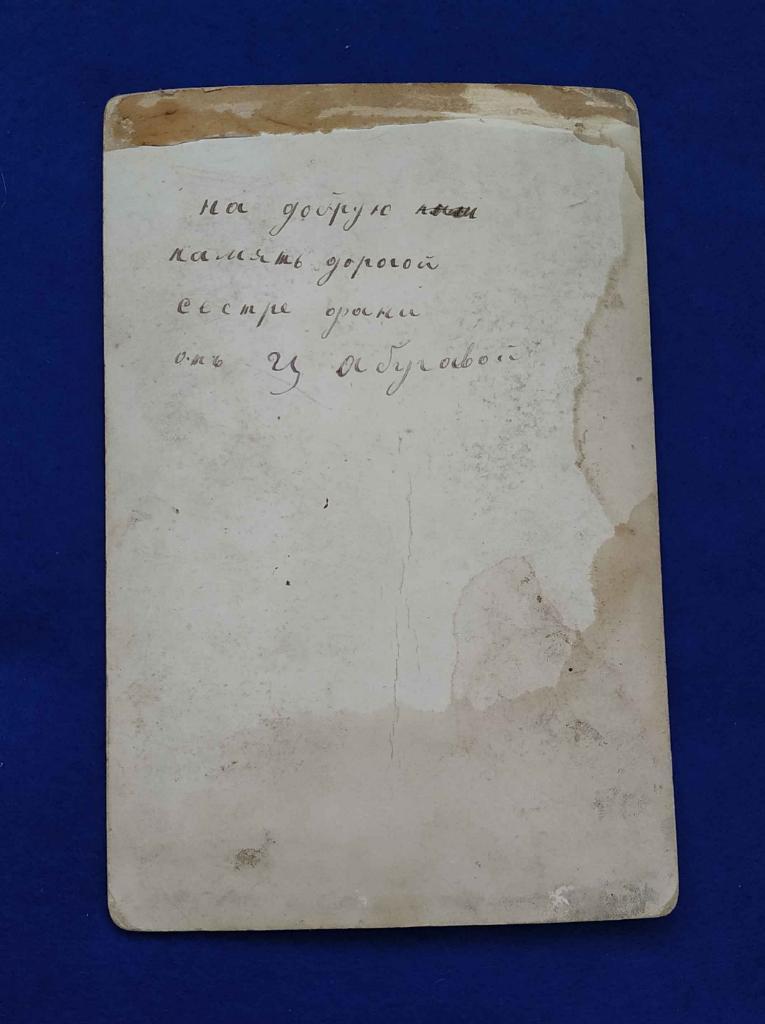 на добрую
память дорогой
сестре фани
отъ Ц абугавой